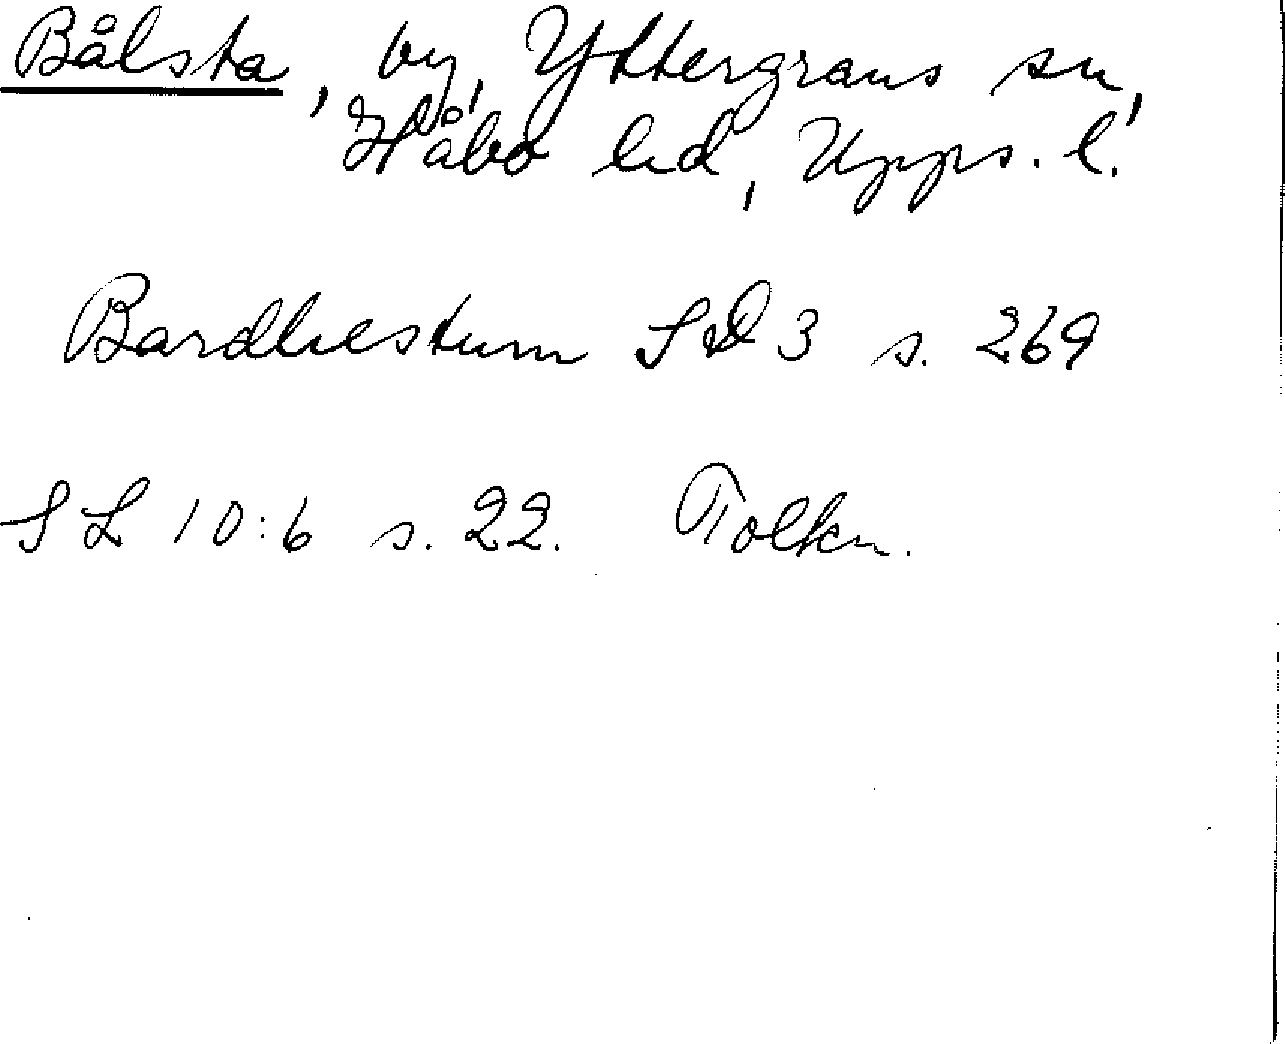 Bålsta, by, Yttergrans sn,
Håbo hd, Upps. l.
Bardlestum SD 3 s. 269
SL 10:6 s. 22. Tolkn.